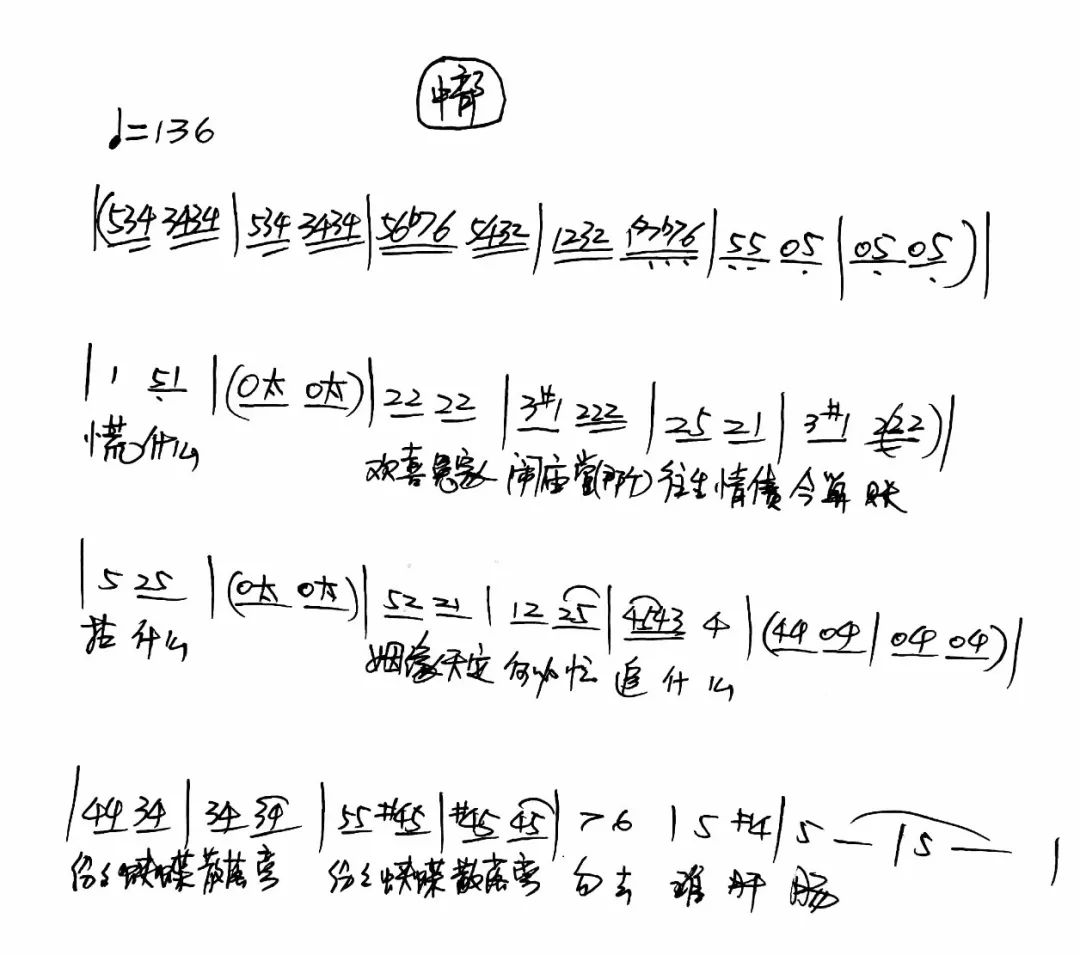 中部
♩=136
|(534 3434|534 3434|56b76 5432|1232 17b76|55 05|05 05)|
|1 51|(0大 0大)|22 22|3#1 222|25 21|3#1 222)|
慌什么 欢喜冤家 闹庙堂(那个) 往生情债今算账
|5 25|(0大 0大)|52 21|12 25|4543 4|(44 04|04 04)|
拈什么 姻缘天定 何必忙 追什么
|44 34|34 34|55 #45|#45 45|7 6|5 #4|5 —|5 —|
纷纷蝴蝶散落 纷纷蝴蝶散落 肝肠